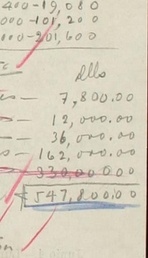 400-19,080
000-101,200
000-201,600
Dlls
7,800.00
12,000.00
36,000.00
162,000.00
330,000.00
547,800.00